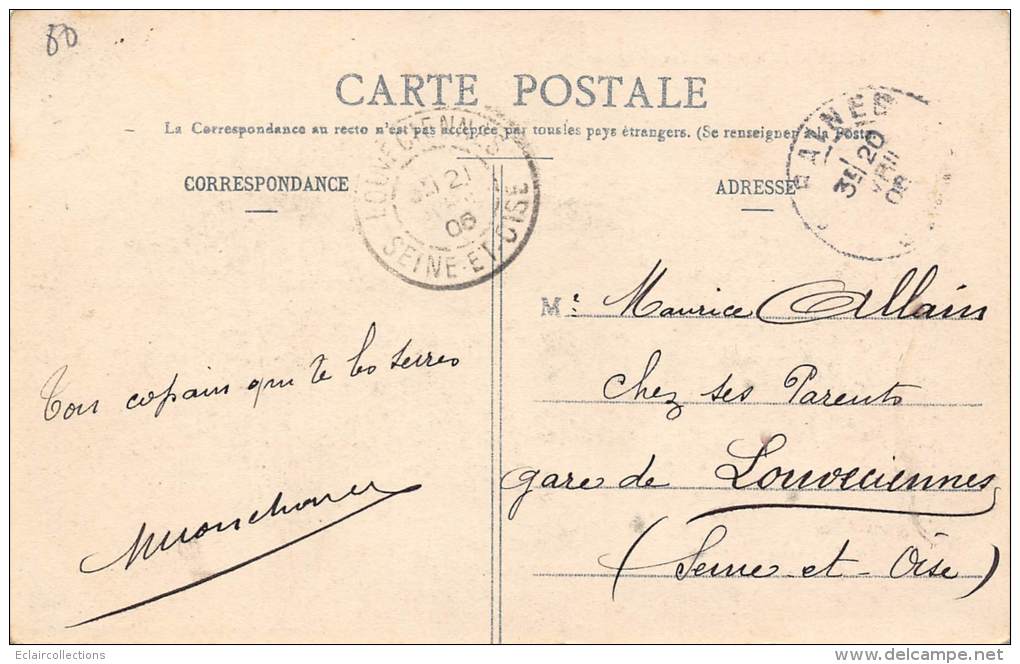 60
CARTE POSTALE
La Correspondance au recto n'est pas acceptée par tous les pays étrangers. (Se renseigner à la Poste)
CORRESPONDANCE
ADRESSE
LOUVECIENNES
21
06
SEINE-ET-OISE
RAINNE
3E
20
AVRIL
06
Mr Maurice Allain
Chez ses Parents
gare de Louveciennes
(Seine-et-Oise)
Ton copain qui te les serres
Eclaircollections
www.delcampe.net